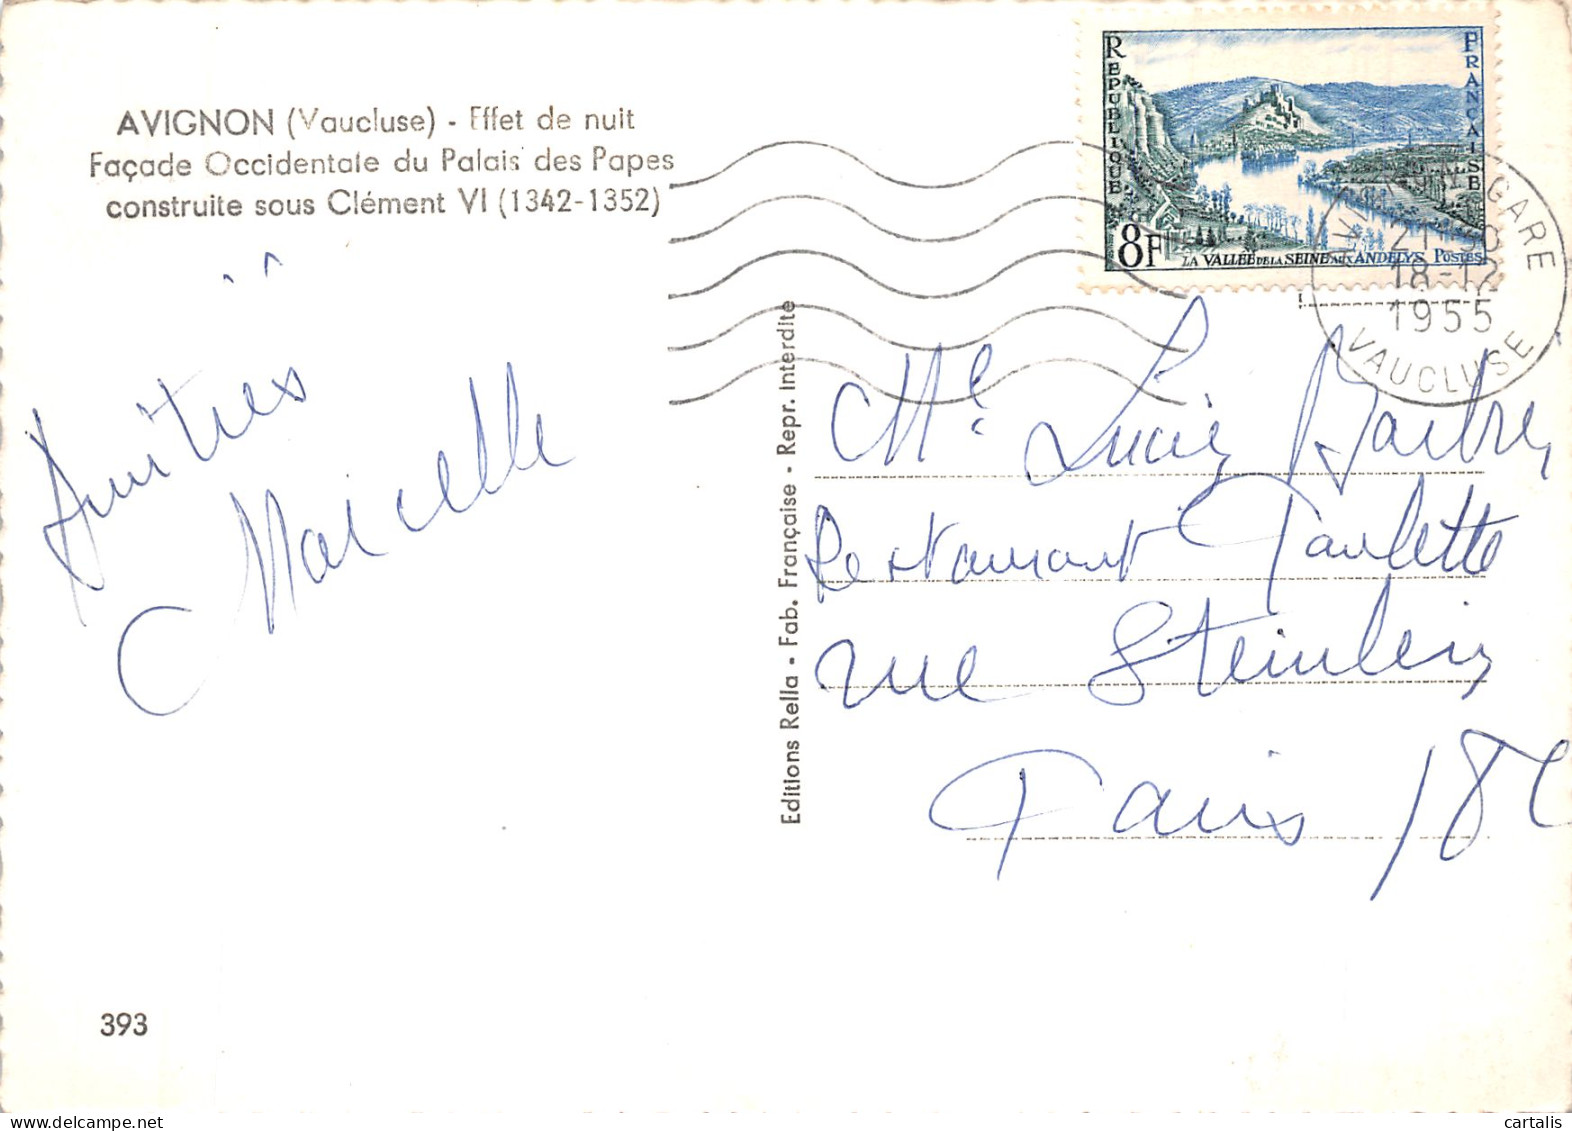 AVIGNON (Vaucluse) - Effet de nuit
Façade Occidentale du Palais des Papes
construite sous Clément VI (1342-1352)
Amitiés
Marcelle
393
Editions Rella - Fab. Française - Repr. Interdite
REPUBLIQUE
FRANÇAISE
8F
LA VALLÉE DE LA SEINE AUX ANDELYS POSTES
AVIGNON GARE
18-12
1955
VAUCLUSE
Mle Lucie
Restaurant Paulette
rue Steinlein
Paris 18e
cartalis